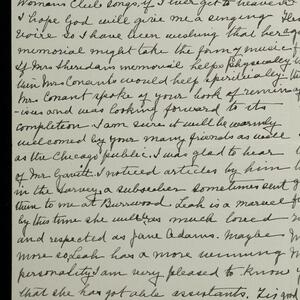 Womans Club songs. If I ever get to heaven
I hope God will give me a singing
voice so I have been wishing that her
memorial might take the form of music
If Mrs Sheridans memorial helps physically
this Mrs Conants would help spiritually.
Mrs Conant spoke of your book of remin
and was looking forward to its
completion I am sure it will be warmly
welcomed by your many friends as well
as the Chicago public. I was glad to hear
of Mr Garrett. I noticed articles by him
in the Survey, a subscriber sometimes sent
them to me at Burrwood. Leah is a marvel
by this time she will be as much loved
and respected as Jane Adams. Maybe
more so, Leah has a more winning
personality, I am very pleased to know
that she has got able assistants.